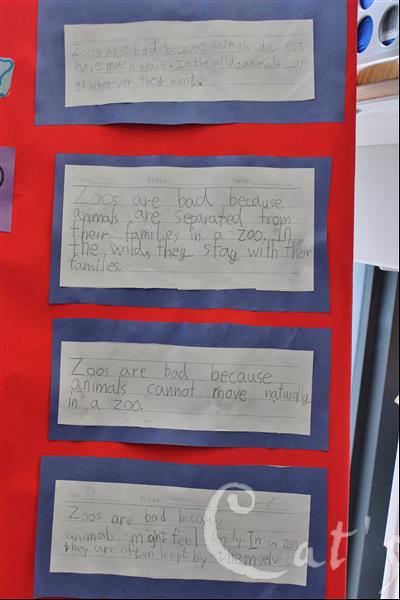 Zoos are bad because animals do not
have much space. In the wild, animals can
go wherever they want.
Zoos are bad because
animals are separated from
their families in a zoo. In
the wild, they stay with their
families.
Zoos are bad because
animals cannot move naturally
in a zoo.
Zoos are bad because
animals might feel lonely. In a zoo
they are often kept by themselves
Cat's